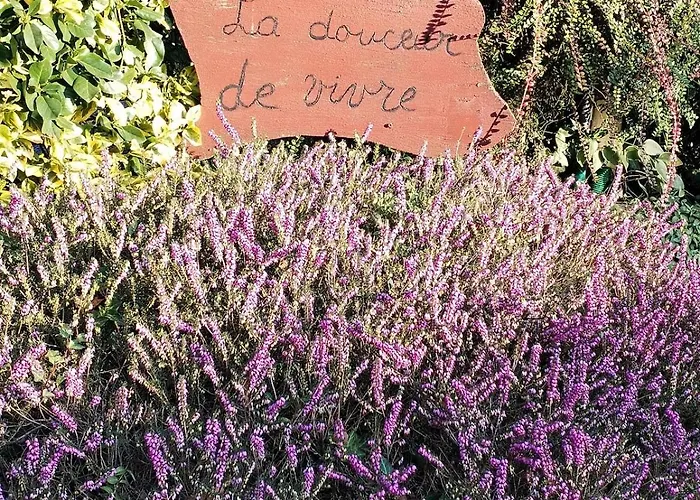 La douceur
de vivre